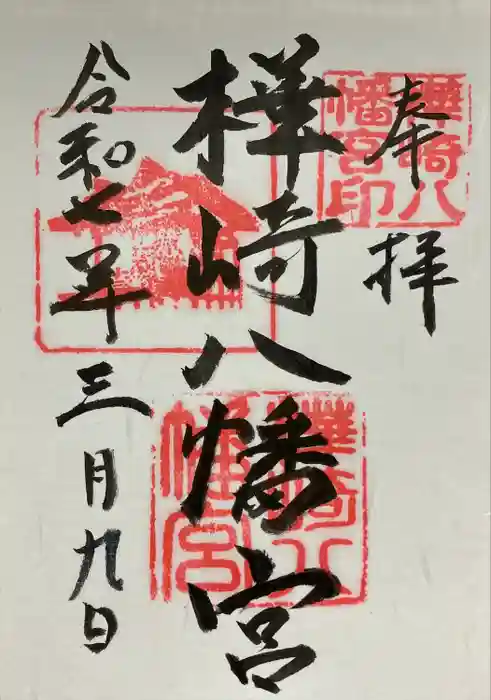 奉拝
樺崎八幡宮
令和七年三月九日
樺崎八幡宮印
樺崎八幡宮